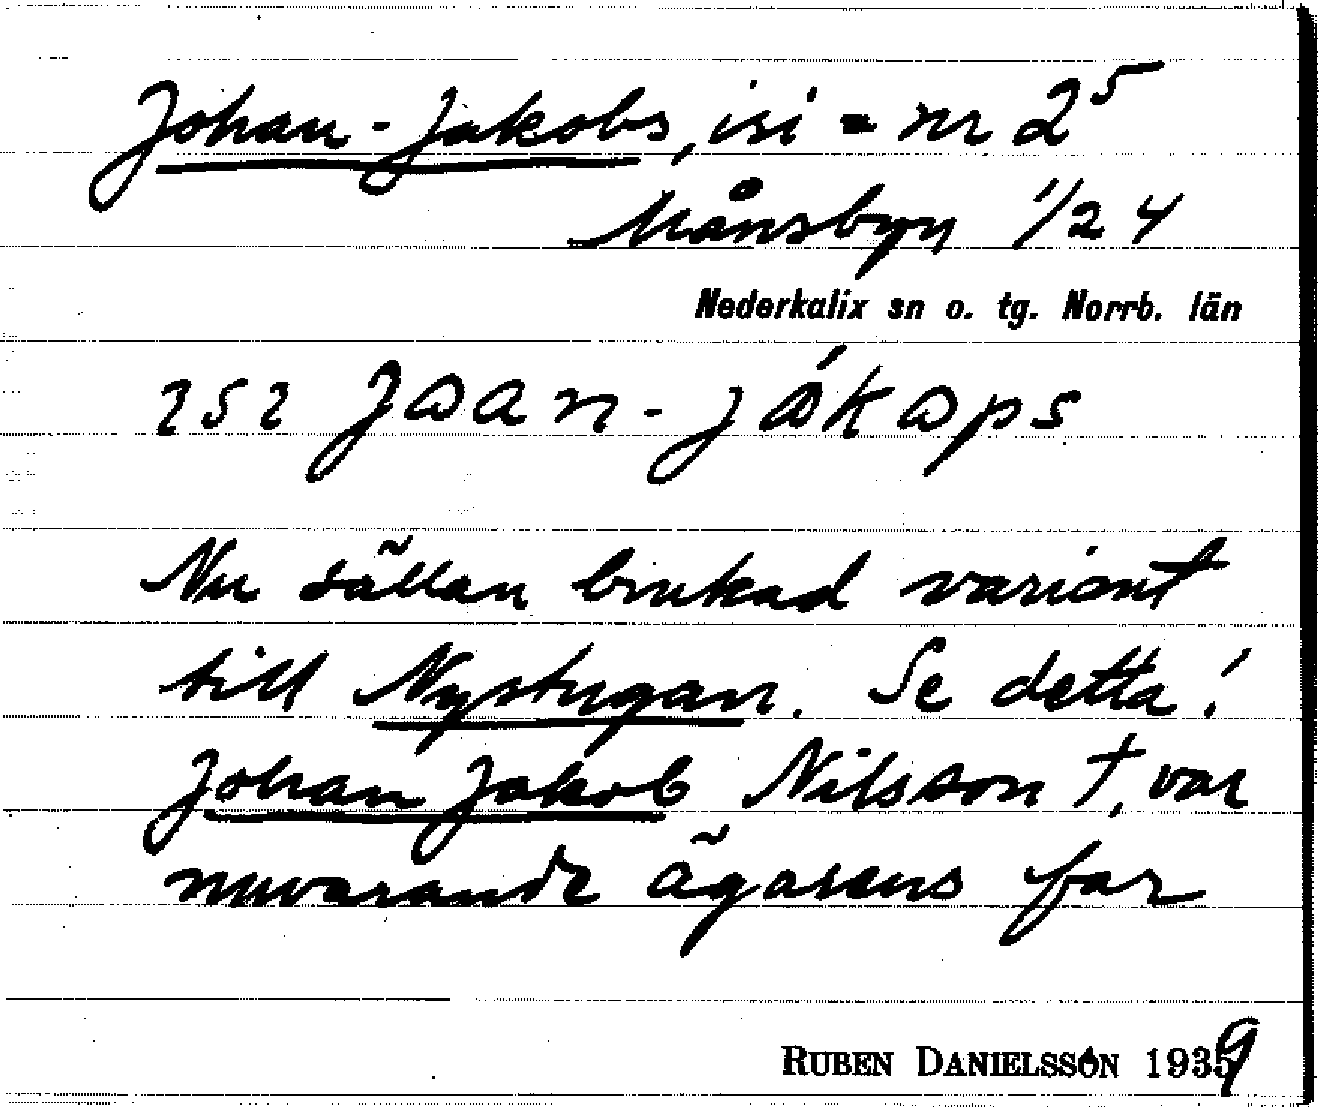 Johan-Jakobs, isi = nr 2⁵
Månsbyn 1/24
Nederkalix sn o. tg. Norrb. län
252 Joan-jákops
Nu sällan brukad variant
till Nystugan. Se detta!
Johan Jakob Nilsson †, var
nuvarande ägarens far
RUBEN DANIELSSON 1939